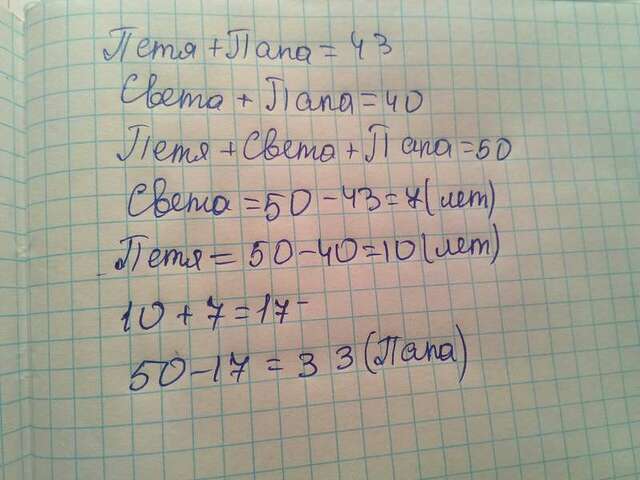 Петя + Папа = 43
Света + Папа = 40
Петя + Света + Папа = 50
Света = 50 - 43 = 7 (лет)
Петя = 50 - 40 = 10 (лет)
10 + 7 = 17
50 - 17 = 33 (Папа)